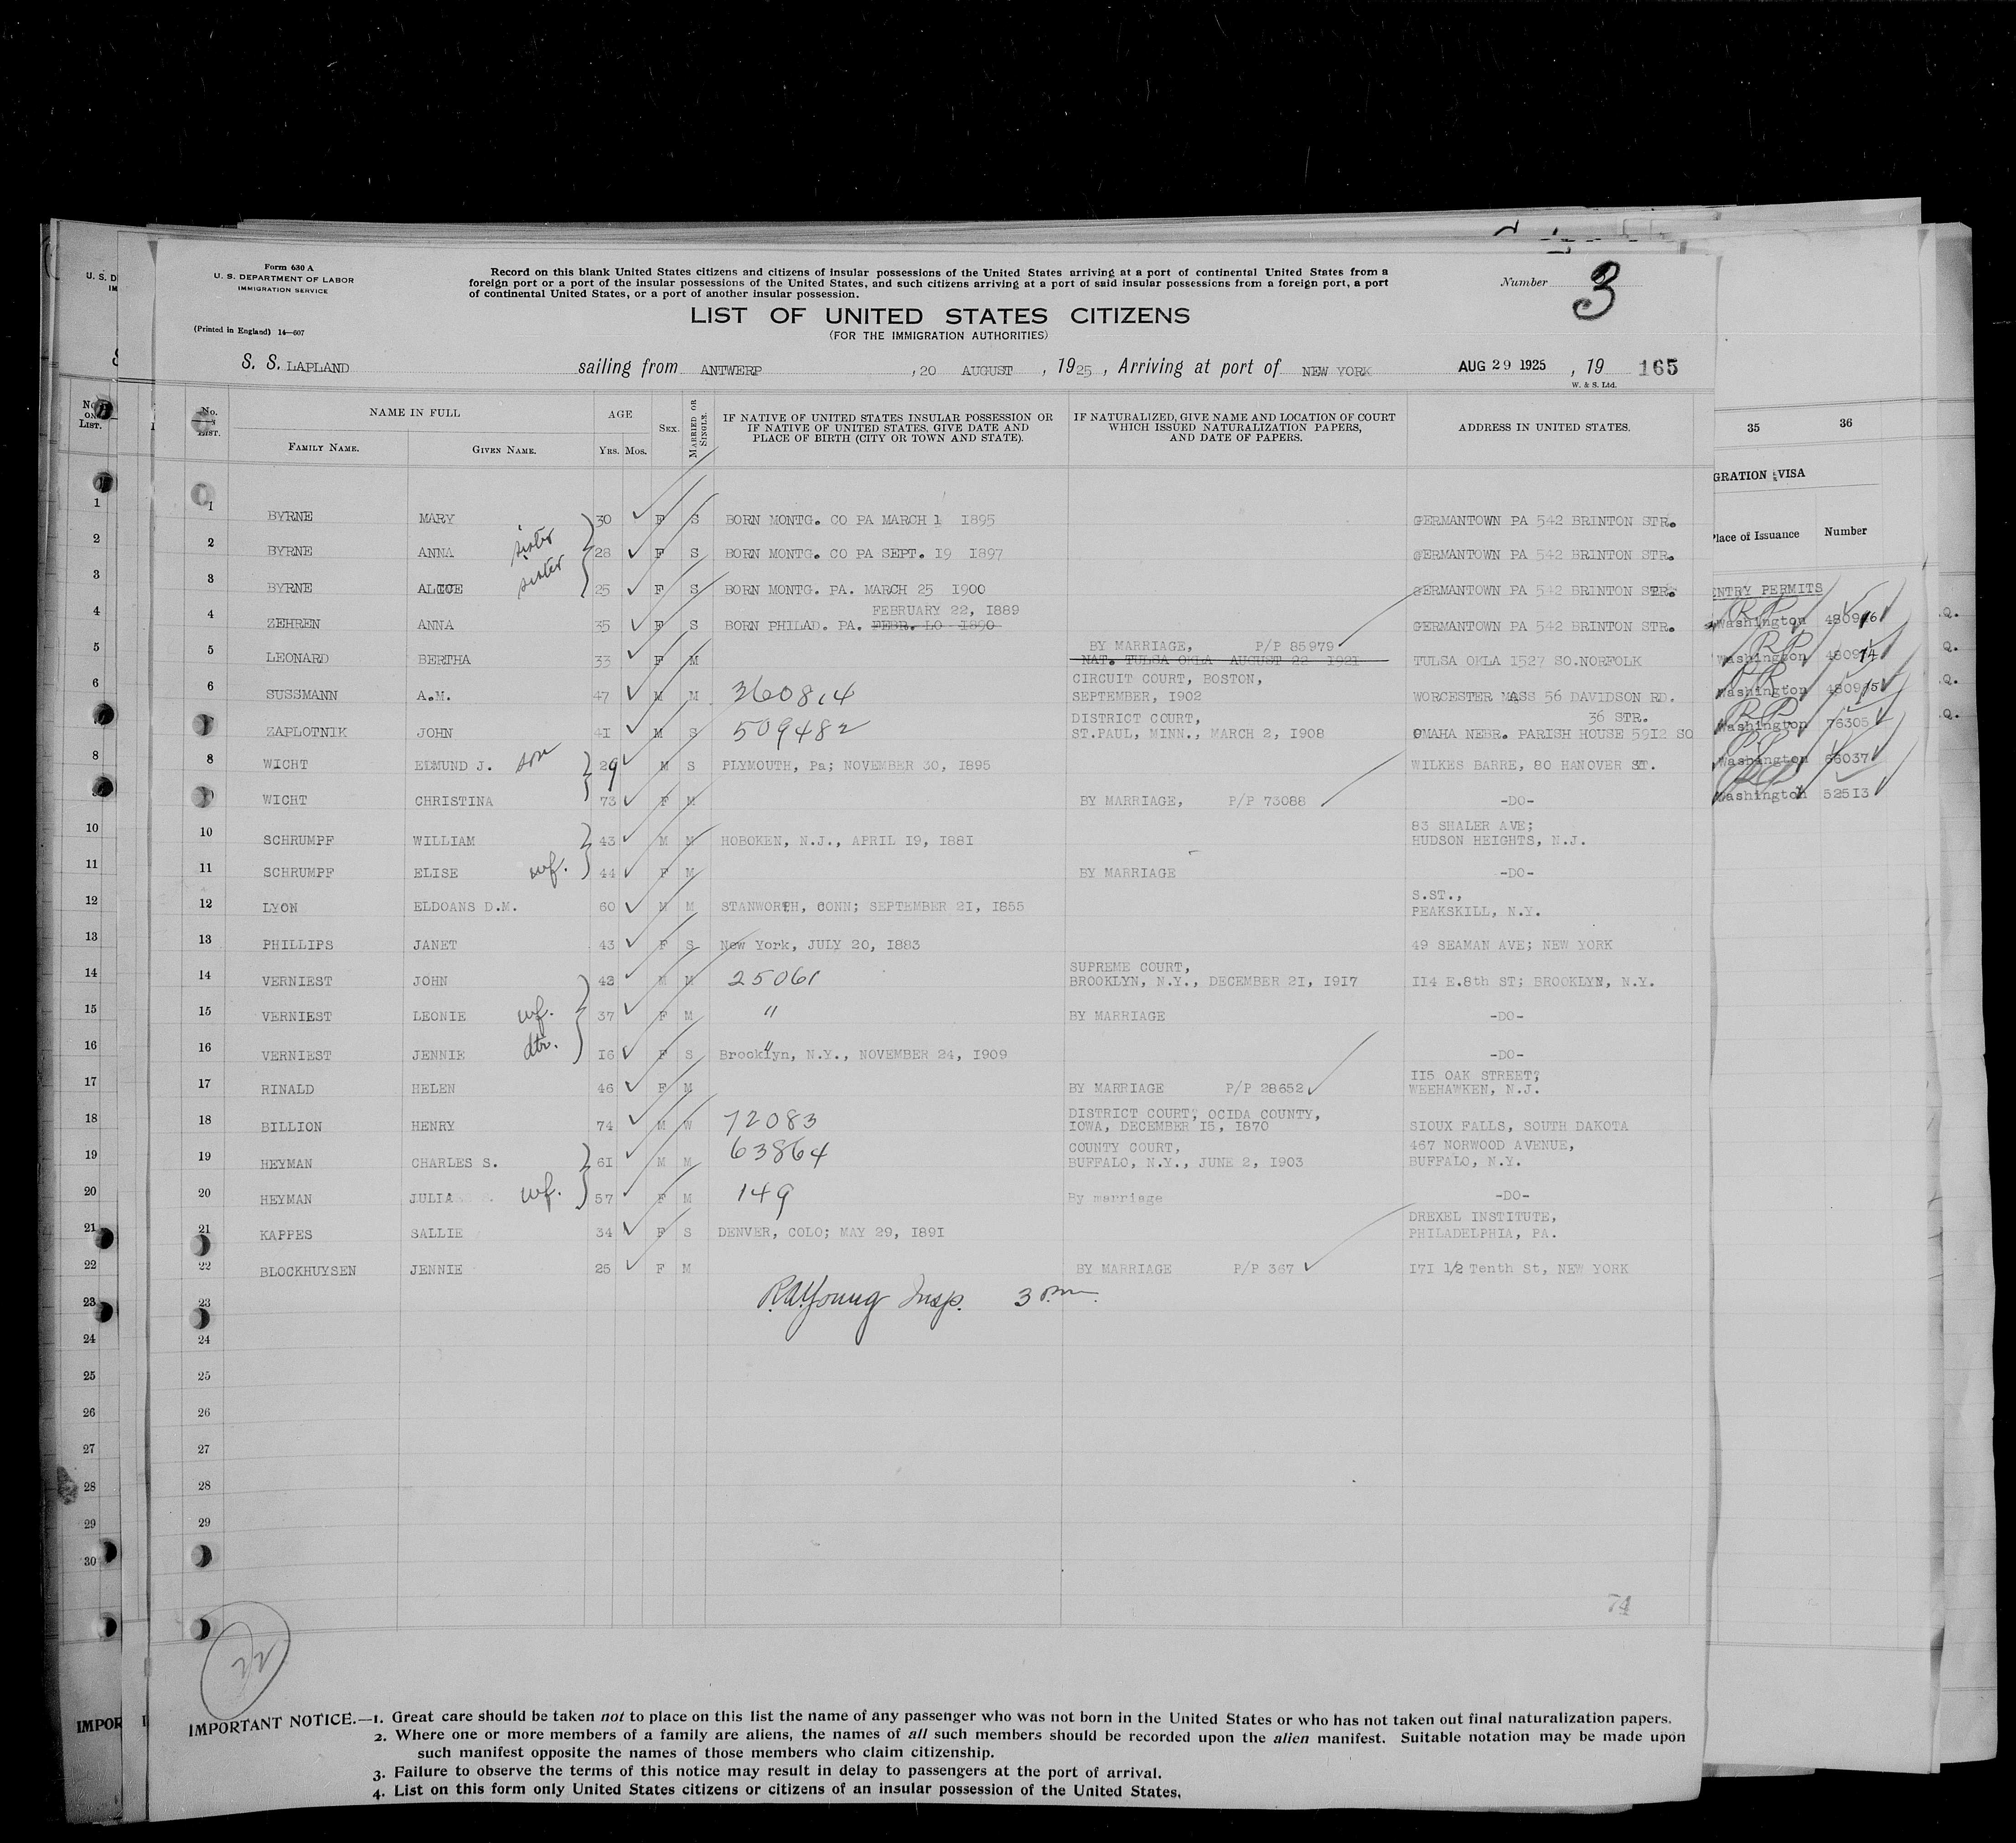 Form 630 A
U. S. DEPARTMENT OF LABOR
IMMIGRATION SERVICE
(Printed in England) 14—607
Record on this blank United States citizens and citizens of insular possessions of the United States arriving at a port of continental United States from a
foreign port or a port of the insular possessions of the United States, and such citizens arriving at a port of said insular possessions from a foreign port, a port
of continental United States, or a port of another insular possession.
Number 3
LIST OF UNITED STATES CITIZENS
(FOR THE IMMIGRATION AUTHORITIES)
S. S. LAPLAND sailing from ANTWERP , 20 AUGUST , 1925 , Arriving at port of NEW YORK AUG 29 1925 , 19 165
W. & S. Ltd.
No. LIST. NAME IN FULL FAMILY NAME. GIVEN NAME. AGE YRS. MOS. SEX. MARRIED OR SINGLE. IF NATIVE OF UNITED STATES INSULAR POSSESSION OR IF NATIVE OF UNITED STATES, GIVE DATE AND PLACE OF BIRTH (CITY OR TOWN AND STATE). IF NATURALIZED, GIVE NAME AND LOCATION OF COURT WHICH ISSUED NATURALIZATION PAPERS, AND DATE OF PAPERS. ADDRESS IN UNITED STATES.
1 BYRNE MARY 30 F S BORN MONTG. CO PA MARCH 1 1895 GERMANTOWN PA 542 BRINTON STR.
2 BYRNE ANNA sister 28 F S BORN MONTG. CO PA SEPT. 19 1897 GERMANTOWN PA 542 BRINTON STR.
3 BYRNE ALICE sister 25 F S BORN MONTG. PA. MARCH 25 1900 GERMANTOWN PA 542 BRINTON STR.
FEBRUARY 22, 1889
4 ZEHREN ANNA 35 F S BORN PHILAD. PA. FEBR. LO 1890 GERMANTOWN PA 542 BRINTON STR.
BY MARRIAGE, P/P 85979
5 LEONARD BERTHA 33 F M NAT. TULSA OKLA AUGUST 22 1921 TULSA OKLA 1527 SO.NORFOLK
CIRCUIT COURT, BOSTON,
6 SUSSMANN A.M. 47 M M 360814 SEPTEMBER, 1902 WORCESTER MASS 56 DAVIDSON RD.
DISTRICT COURT, 36 STR.
7 ZAPLOTNIK JOHN 41 M S 509482 ST.PAUL, MINN., MARCH 2, 1908 OMAHA NEBR. PARISH HOUSE 5912 SO
8 WICHT EDMUND J. son 29 M S PLYMOUTH, Pa; NOVEMBER 30, 1895 WILKES BARRE, 80 HANOVER ST.
9 WICHT CHRISTINA 73 F M BY MARRIAGE, P/P 73088 -DO-
83 SHALER AVE;
10 SCHRUMPF WILLIAM 43 M M HOBOKEN, N.J., APRIL 19, 1881 HUDSON HEIGHTS, N.J.
11 SCHRUMPF ELISE wf. 44 F M BY MARRIAGE -DO-
S.ST.,
12 LYON ELDOANS D.M. 60 M M STANWORTH, CONN; SEPTEMBER 21, 1855 PEAKSKILL, N.Y.
13 PHILLIPS JANET 43 F S New York, JULY 20, 1883 49 SEAMAN AVE; NEW YORK
SUPREME COURT,
14 VERNIEST JOHN 43 M M 25061 BROOKLYN, N.Y., DECEMBER 21, 1917 114 E.8th ST; BROOKLYN, N.Y.
15 VERNIEST LEONIE wf. 37 F M " BY MARRIAGE -DO-
16 VERNIEST JENNIE dtr. 16 F S Brooklyn, N.Y., NOVEMBER 24, 1909 -DO-
115 OAK STREET;
17 RINALD HELEN 46 F M BY MARRIAGE P/P 28652 WEEHAWKEN, N.J.
DISTRICT COURT, OCIDA COUNTY,
18 BILLION HENRY 74 M W 72083 IOWA, DECEMBER 15, 1870 SIOUX FALLS, SOUTH DAKOTA
COUNTY COURT, 467 NORWOOD AVENUE,
19 HEYMAN CHARLES S. 61 M M 63864 BUFFALO, N.Y., JUNE 2, 1903 BUFFALO, N.Y.
20 HEYMAN JULIA wf. 57 F M 149 By marriage -DO-
DREXEL INSTITUTE,
21 KAPPES SALLIE 34 F S DENVER, COLO; MAY 29, 1891 PHILADELPHIA, PA.
22 BLOCKHUYSEN JENNIE 25 F M BY MARRIAGE P/P 367 171 1/2 Tenth St, NEW YORK
23 R.A. Young Insp. 3 pm
24
25
26
27
28
29
74
22
IMPORTANT NOTICE.—1. Great care should be taken not to place on this list the name of any passenger who was not born in the United States or who has not taken out final naturalization papers.
2. Where one or more members of a family are aliens, the names of all such members should be recorded upon the alien manifest. Suitable notation may be made upon
such manifest opposite the names of those members who claim citizenship.
3. Failure to observe the terms of this notice may result in delay to passengers at the port of arrival.
4. List on this form only United States citizens or citizens of an insular possession of the United States.
35 36
GRATION VISA
Place of Issuance Number
ENTRY PERMITS
Washington
Washington
Washington
Washington 76305
Washington 66037
Washington 52513